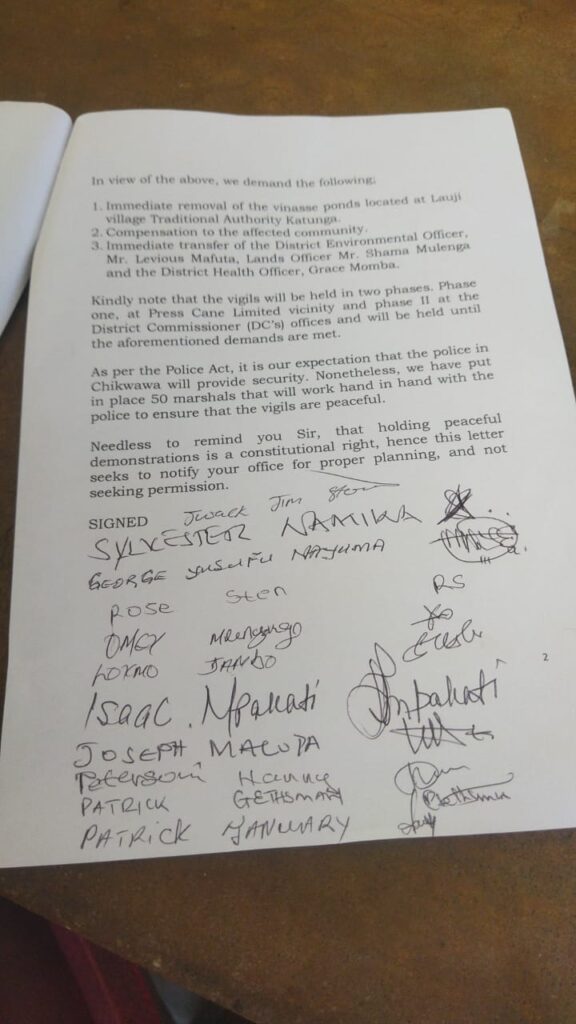 In view of the above, we demand the following;
1. Immediate removal of the vinasse ponds located at Lauji
village Traditional Authority Katunga.
2. Compensation to the affected community.
3. Immediate transfer of the District Environmental Officer,
Mr. Levious Mafuta, Lands Officer Mr. Shama Mulenga
and the District Health Officer, Grace Momba.
Kindly note that the vigils will be held in two phases. Phase
one, at Press Cane Limited vicinity and phase II at the
District Commissioner (DC's) offices and will be held until
the aforementioned demands are met.
As per the Police Act, it is our expectation that the police in
Chikwawa will provide security. Nonetheless, we have put
in place 50 marshals that will work hand in hand with the
police to ensure that the vigils are peaceful.
Needless to remind you Sir, that holding peaceful
demonstrations is a constitutional right, hence this letter
seeks to notify your office for proper planning, and not
seeking permission.
SIGNED Jim
SYLVESTER NAMIKA
GEORGE
ROSE Sten RS
2
Isaac. Mpakati Mpakati
JOSEPH
PATRICK
PATRICK JANUARY